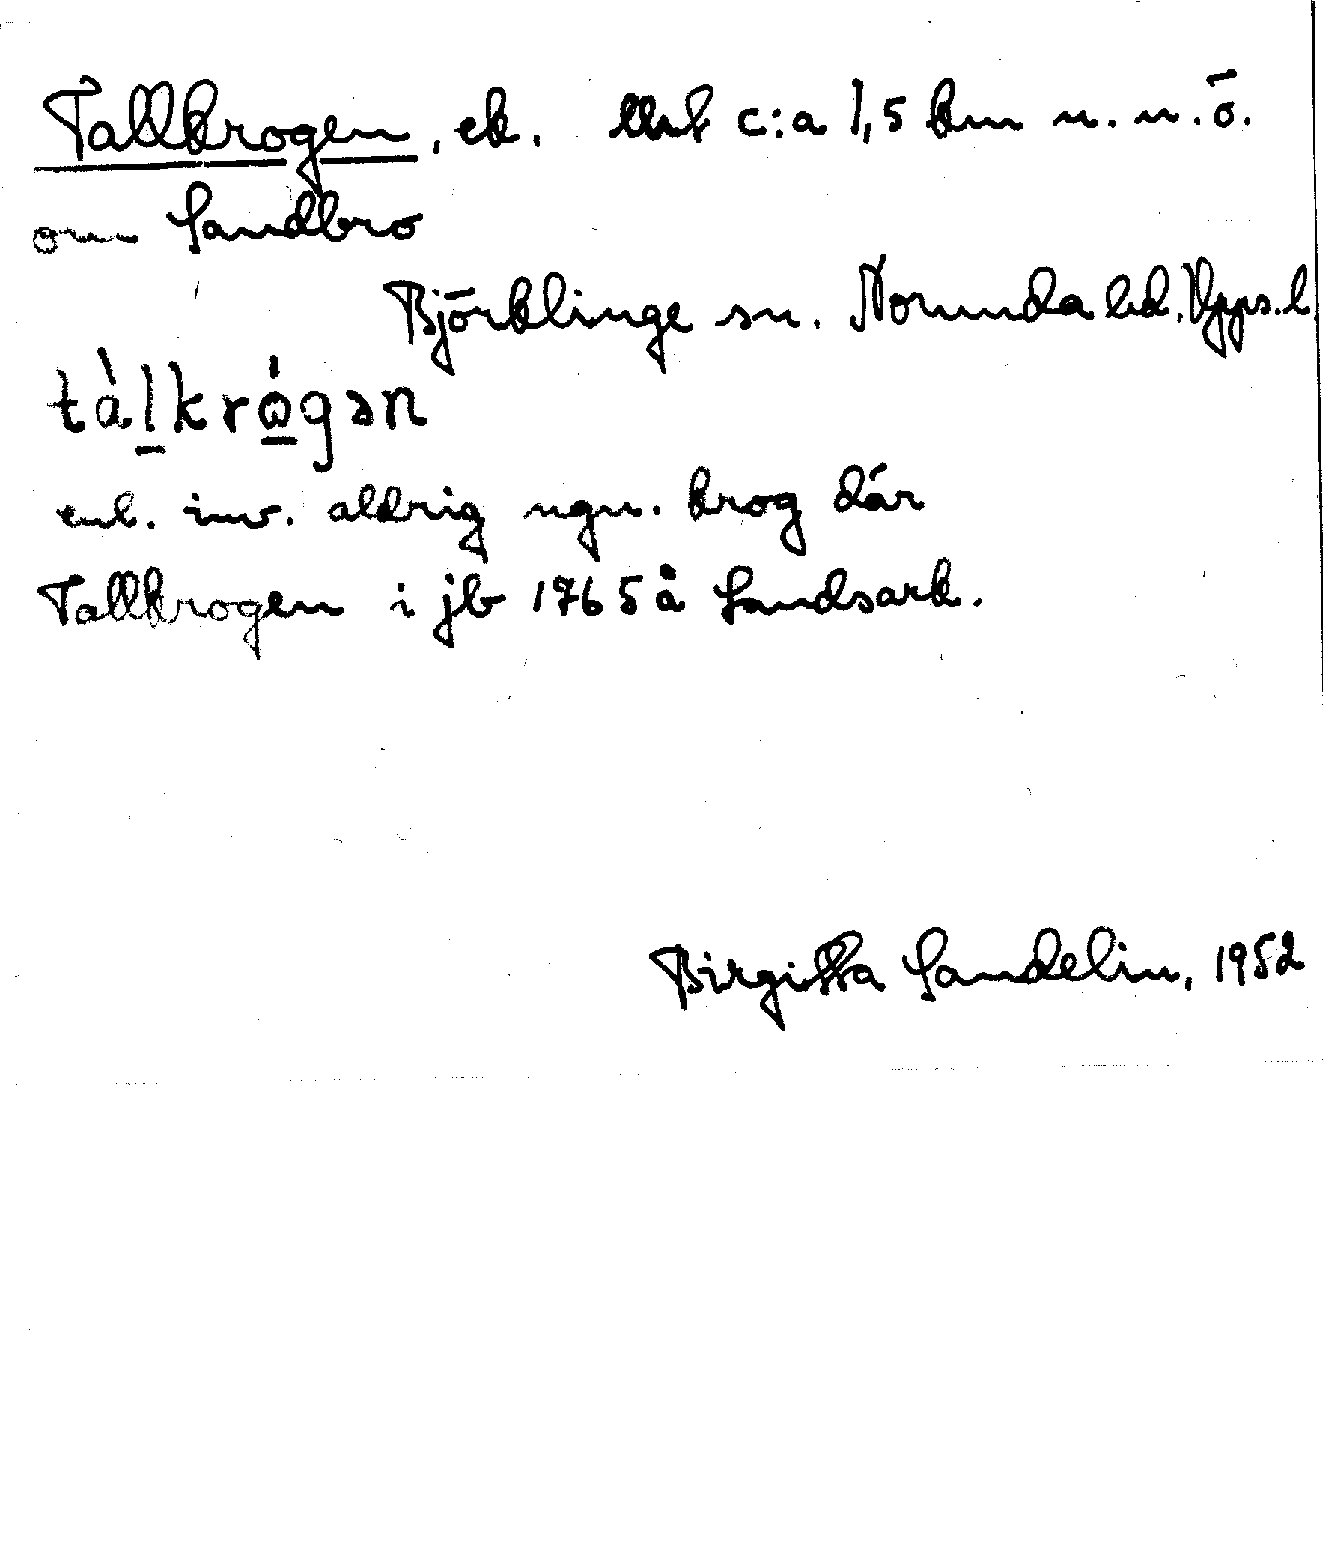 Tallkrogen, ek. c:a 1,5 km n. n. ö.
om Sandbro
Björklinge sn. Norunda hd. Upps. l.
tàl̠krǫ̀gən
enl. inv. aldrig ngn. krog där
Tallkrogen i jb 1765 å Landsark.
Birgitta Sandelin, 1952